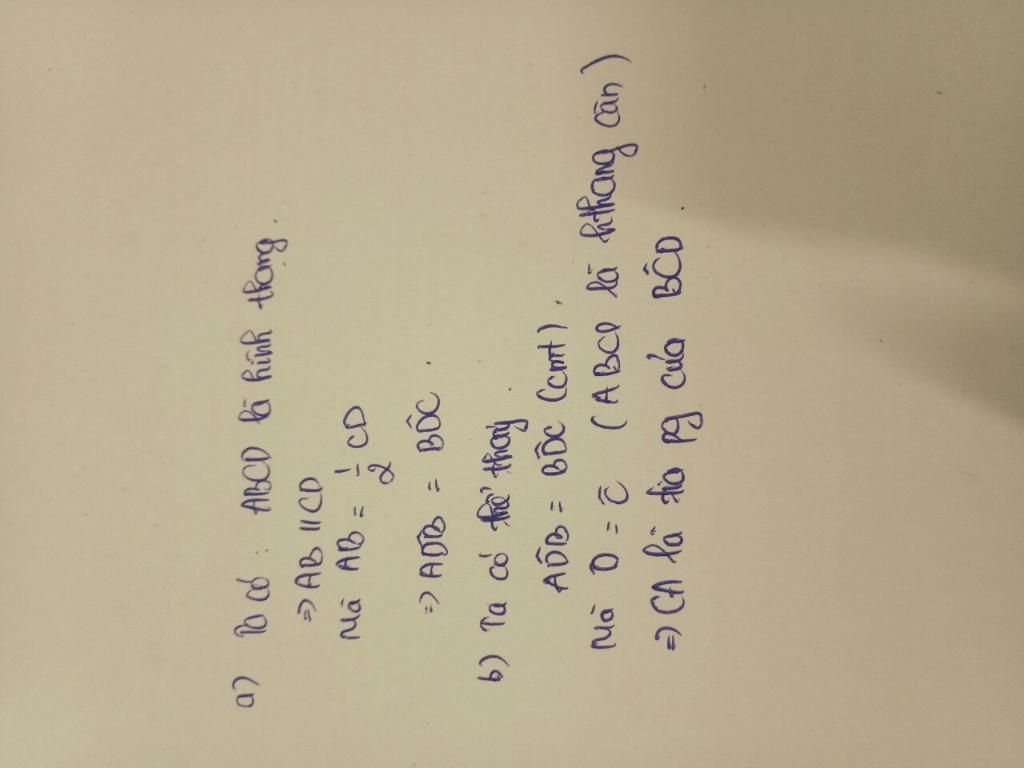 a) Ta có: ABCD là hình thang
=> AB // CD
Mà AB = 1/2 CD
=> AD̂B = BD̂C.
b) Ta có thể thấy.
AD̂B = BD̂C (cmt).
Mà D̂ = Ĉ (ABCD là hthang cân)
=> CA là tia pg của BĈD